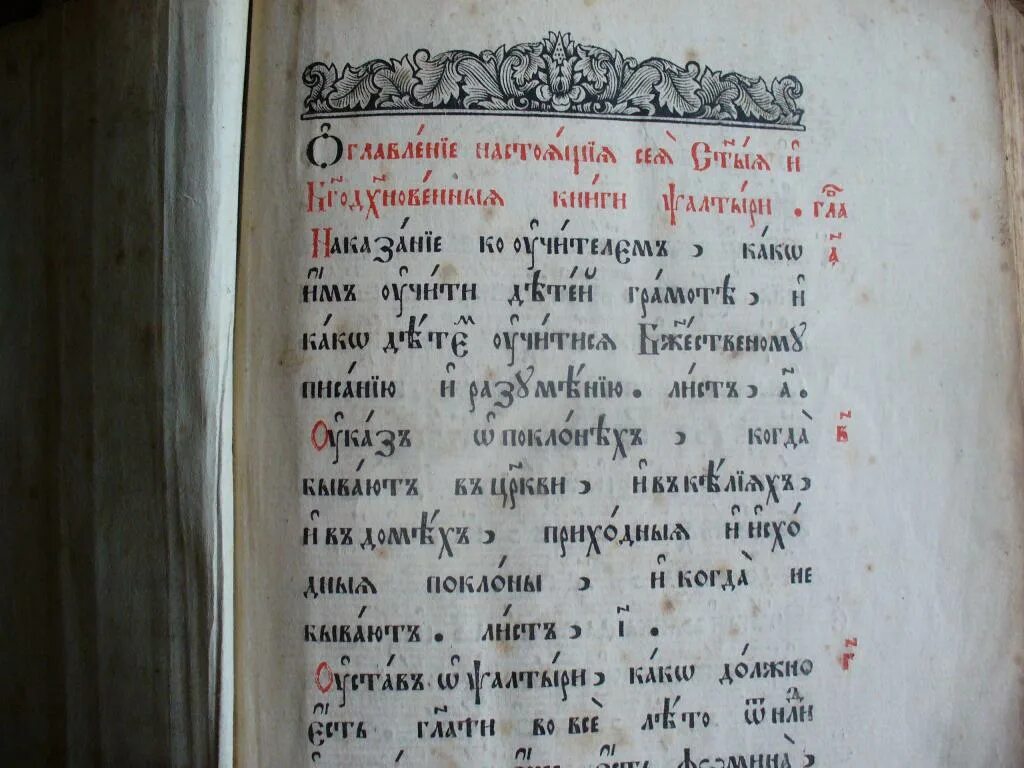 Ѻ҆главле́нїе настоѧ́щїѧ сеѧ̀ Ст҃ы́ѧ и҆
Бг҃одх҃нове́нныѧ кни́ги ѱалты́ри . гла
Наказа́нїе ко ᲂу҆чи́телемъ , ка́кѡ а҃
и҆̀мъ ᲂу҆чи́ти дѣте́й гра́мотѣ , и҆
ка́кѡ дѣ́темъ ᲂу҆чи́тисѧ Бж҃е́ственомꙋ
писа́нїю и҆ разꙋмѣ́нїю . ли́стъ , а҃ .
Оу҆ка́зъ ѡ҆ покло́нѣхъ , когда̀ в҃
быва́ютъ въ цр҃кви , и҆ въ кѣ́лїѧхъ ,
и҆ въ домѣ́хъ , прихо́дныѧ и҆ и҆схо́
дныѧ покло́ны , и҆ когда̀ не
быва́ютъ . ли́стъ , і҃ .
Оу҆ста́въ ѡ҆ ѱалты́ри , ка́кѡ до́лжно г҃
є҆́сть гл҃ати во всѐ лѣ́то ѿ нⷣли